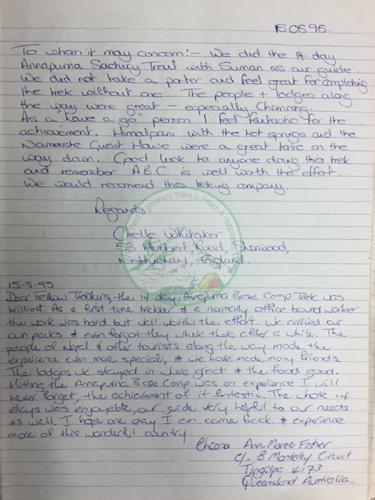 15.05.95.
To whom it may concern:- We did the 14 day
Annapurna Sanctury Trail with Suman as our guide.
We did not take a porter and feel great for completing
the trek without one. The people + lodges along
the way were great - especially Chomrong.
As a "have a go" person I feel fantastic for the
achievement. Himalpani with the hot springs and the
Namaste Guest House were a great tonic on the
way down. Good luck to anyone doing this trek
and remember A.B.C. is well worth the effort.
We would recomend this treking company.
Regards
Chelle Whitaker
Road, Sherwood,
Nottingham, England.
15-5-95
Dear Fellow Trekkers, the 14 day Annapurna Base Camp Trek was
brilliant. As a first time trekker & a normally office bound worker
the work was hard but well worth the effort. We carried our
own packs & even forgot they where there after a while. The
people of Nepal & other tourists along the way made the
experience even more special, & we have made many friends.
The lodges we stayed in where great & the food good.
Hitting the Annapurna Base Camp was an experience I will
never forget, the achievement of it fantastic. The whole 14
days was enjoyable, our guide very helpful to our needs
as well. I hope one day I can come back & experience
more of this wonderful country.
Cheers Ann-Maree Fisher
C/- 8 Monterey Circuit
Tingalpa 4173
Queensland Australia.